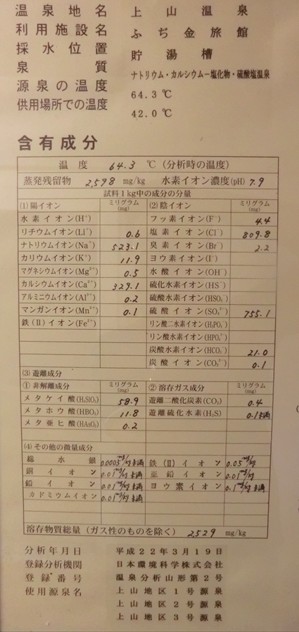 温泉地名 上山温泉
利用施設名 ふぢ金旅館
採水位置 貯湯槽
泉質 ナトリウム・カルシウム－塩化物・硫酸塩温泉
源泉の温度 64.3℃
供用場所での温度 42.0℃
含有成分
温度 64.3 ℃(分析時の温度)
蒸発残留物 2,598 mg/kg 水素イオン濃度(pH) 7.9
試料1kg中の成分の分量
(1)陽イオン ミリグラム(mg) (2)陰イオン ミリグラム(mg)
水素イオン(H⁺) フッ素イオン(F⁻) 4.4
リチウムイオン(Li⁺) 0.6 塩素イオン(Cl⁻) 809.8
ナトリウムイオン(Na⁺) 523.1 臭素イオン(Br⁻) 2.2
カリウムイオン(K⁺) 11.9 ヨウ素イオン(I⁻)
マグネシウムイオン(Mg²⁺) 0.5 水酸イオン(OH⁻)
カルシウムイオン(Ca²⁺) 329.1 硫化水素イオン(HS⁻)
アルミニウムイオン(Al³⁺) 0.2 硫酸水素イオン(HSO₄⁻)
マンガンイオン(Mn²⁺) 0.1 硫酸イオン(SO₄²⁻) 755.1
鉄(Ⅱ)イオン(Fe²⁺) リン酸二水素イオン(H₂PO₄⁻)
リン酸水素イオン(HPO₄²⁻)
炭酸水素イオン(HCO₃⁻) 21.0
炭酸イオン(CO₃²⁻) 0.1
(3)遊離成分
①非解離成分 ミリグラム(mg) ②溶存ガス成分 ミリグラム(mg)
メタケイ酸(H₂SiO₃) 58.9 遊離二酸化炭素(CO₂) 0.4
メタホウ酸(HBO₂) 11.8 遊離硫化水素(H₂S) 0.1未満
メタ亜ヒ酸(HAsO₂) 0.2
(4)その他の微量成分
総水銀 0.0005mg/kg未満 鉄(Ⅲ)イオン 0.05mg/kg
銅イオン 0.01mg/kg未満 亜鉛イオン 0.01mg/kg未満
鉛イオン 0.01mg/kg未満 ヨウ素イオン 0.1mg/kg未満
カドミウムイオン 0.01mg/kg未満
溶存物質総量(ガス性のものを除く) 2529 mg/kg
分析年月日 平成22年3月19日
登録分析機関 日本環境科学株式会社
登録番号 温泉分析山形第2号
使用源泉名 上山地区1号源泉
上山地区2号源泉
上山地区3号源泉